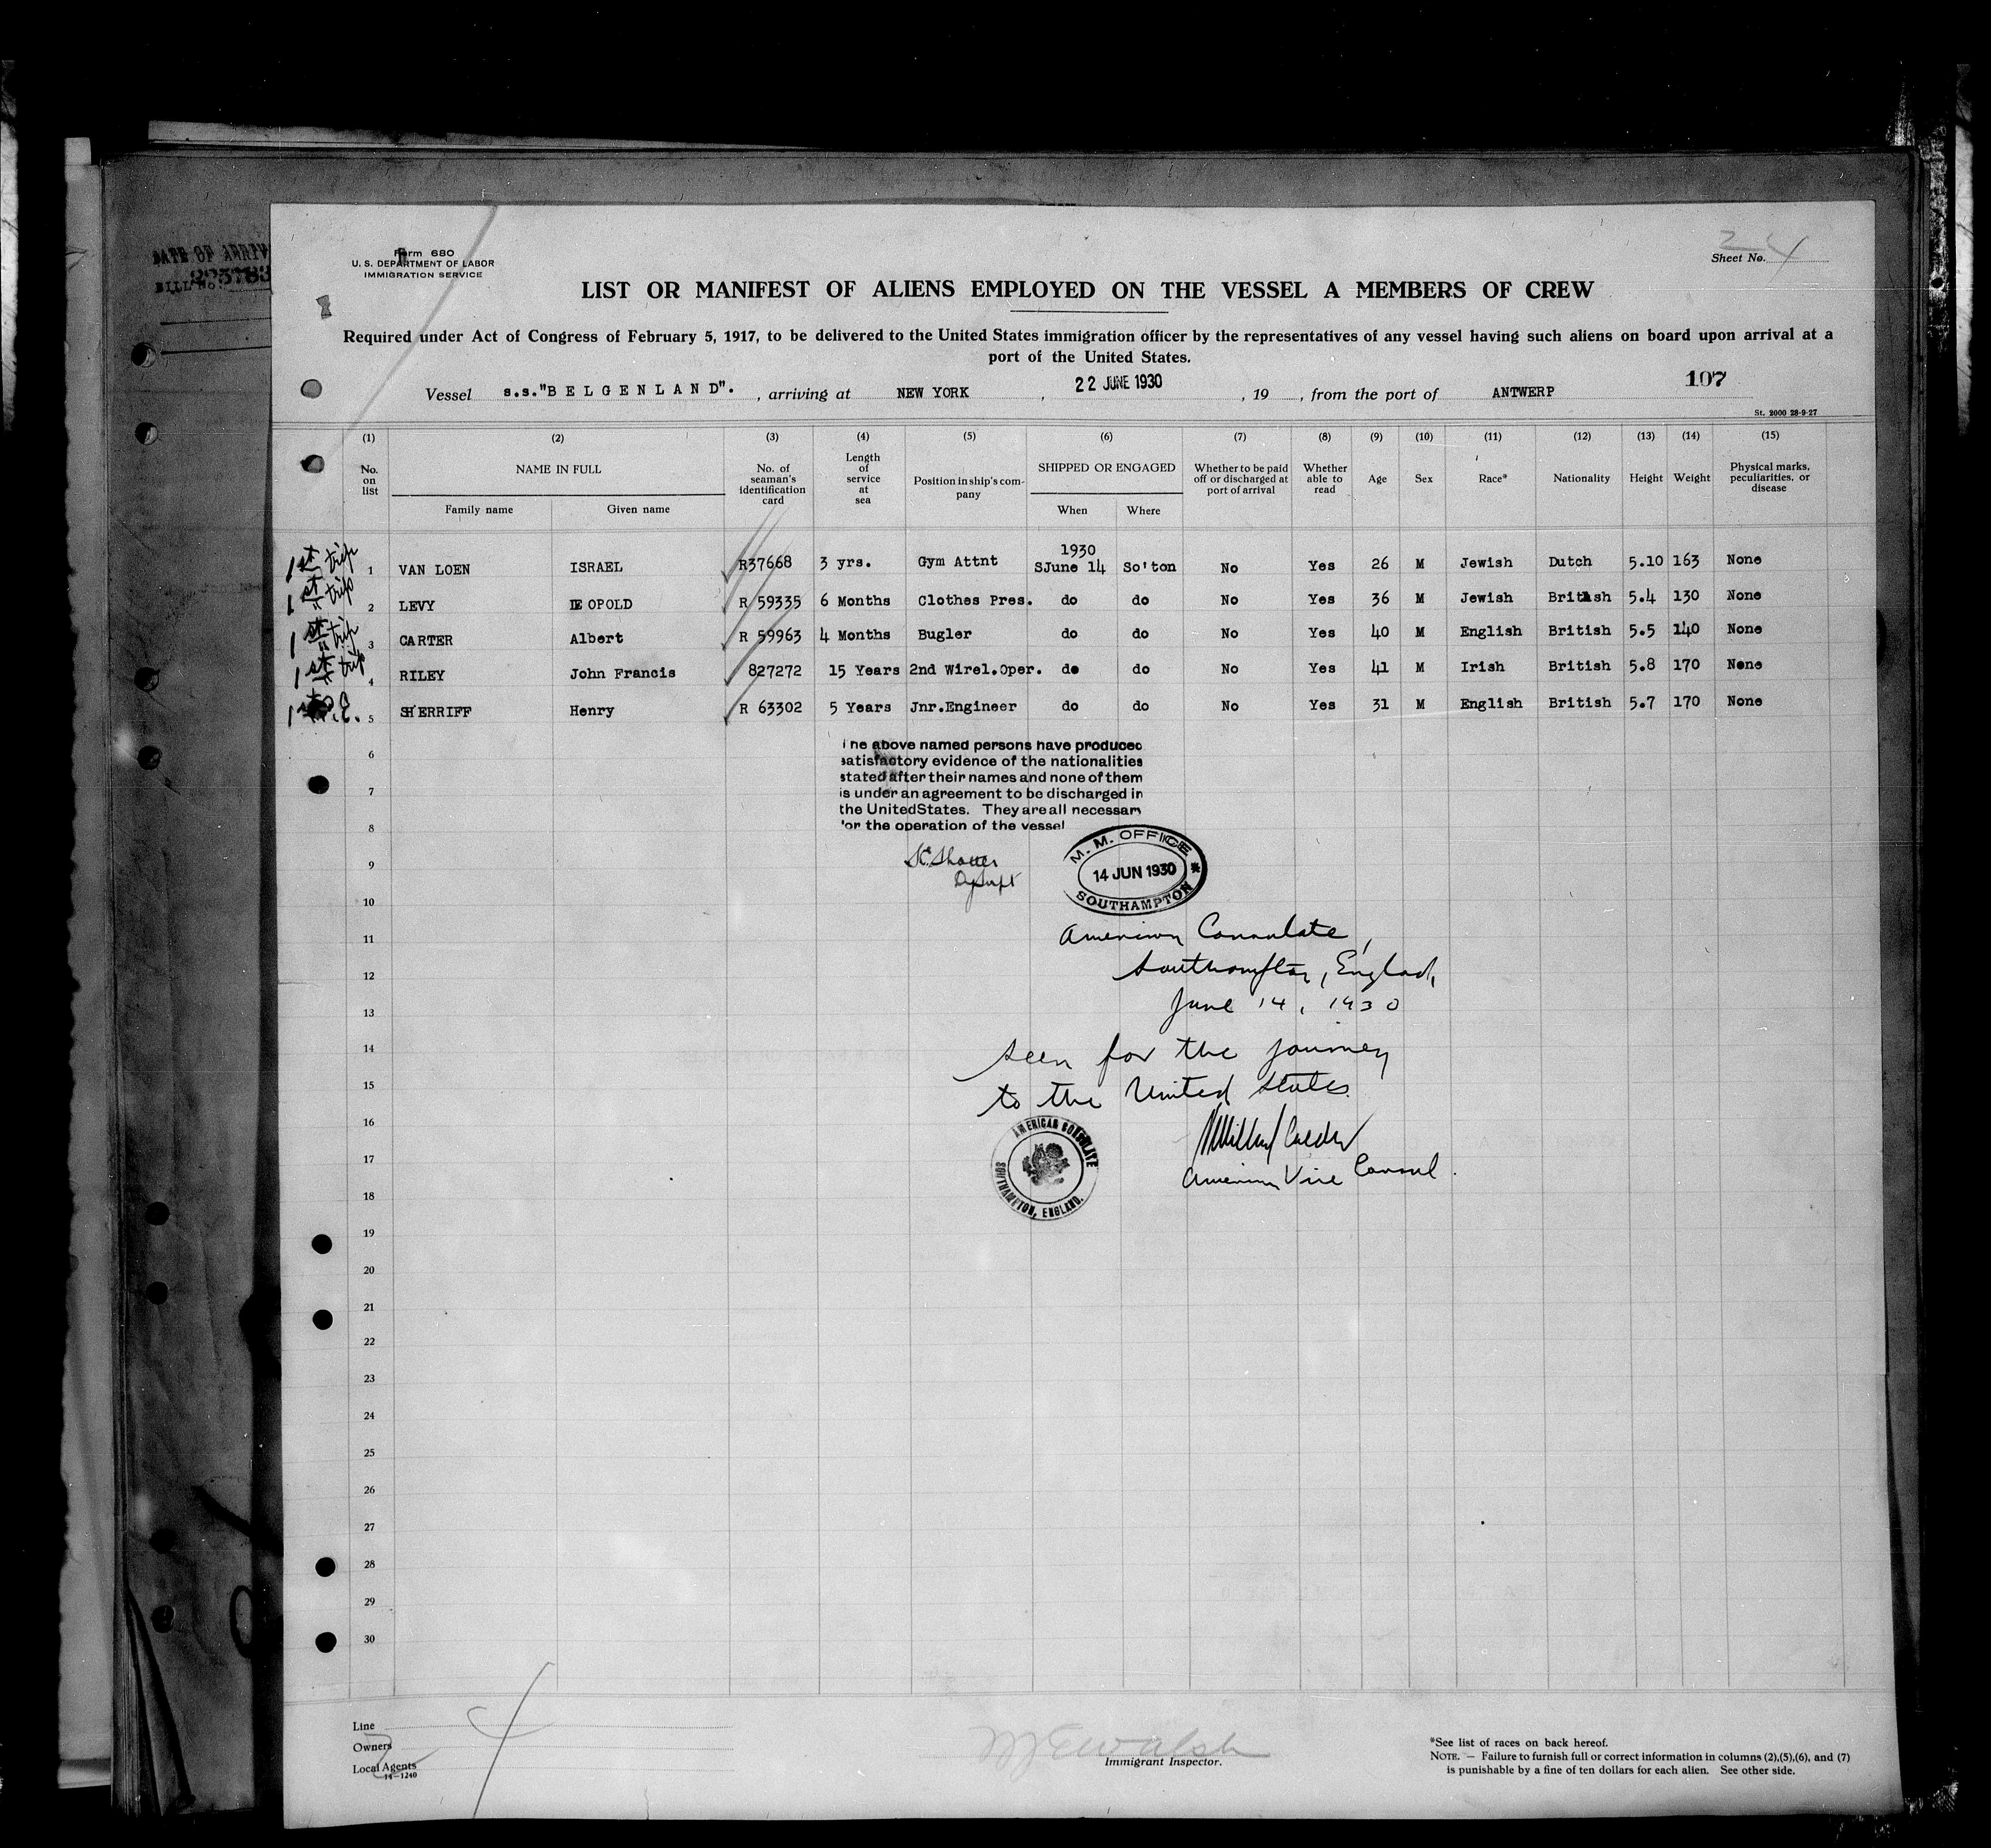 Form 680
U. S. DEPARTMENT OF LABOR
IMMIGRATION SERVICE
Sheet No. 4
LIST OR MANIFEST OF ALIENS EMPLOYED ON THE VESSEL A MEMBERS OF CREW
Required under Act of Congress of February 5, 1917, to be delivered to the United States immigration officer by the representatives of any vessel having such aliens on board upon arrival at a
port of the United States.
Vessel s.s."BELGENLAND". , arriving at NEW YORK , 22 JUNE 1930 , 19 , from the port of ANTWERP 107
St. 2000 28-9-27
(1) (2) (3) (4) (5) (6) (7) (8) (9) (10) (11) (12) (13) (14) (15)
No. on list NAME IN FULL Family name Given name No. of seaman's identification card Length of service at sea Position in ship's company SHIPPED OR ENGAGED When Where Whether to be paid off or discharged at port of arrival Whether able to read Age Sex Race* Nationality Height Weight Physical marks, peculiarities, or disease
1st trip 1 VAN LOEN ISRAEL R37668 3 yrs. Gym Attnt 1930 SJune 14 So'ton No Yes 26 M Jewish Dutch 5.10 163 None
1st trip 2 LEVY LEOPOLD R 59335 6 Months Clothes Pres. do do No Yes 36 M Jewish British 5.4 130 None
1st trip 3 CARTER Albert R 59963 4 Months Bugler do do No Yes 40 M English British 5.5 140 None
1st trip 4 RILEY John Francis 827272 15 Years 2nd Wirel.Oper. do do No Yes 41 M Irish British 5.8 170 None
1st 5 SHERRIFF Henry R 63302 5 Years Jnr.Engineer do do No Yes 31 M English British 5.7 170 None
The above named persons have produced
satisfactory evidence of the nationalities
stated after their names and none of them
is under an agreement to be discharged in
the United States. They are all necessary
for the operation of the vessel
M. M. OFFICE
14 JUN 1930
SOUTHAMPTON
American Consulate,
Southampton, England,
June 14, 1930
Seen for the journey
to the United States.
AMERICAN CONSULATE
SOUTHAMPTON, ENGLAND.
American Vice Consul.
6
7
8
9
10
11
12
13
14
15
16
17
18
19
20
21
22
23
24
25
26
27
28
29
30
Line
Owners
Local Agents
14-1240
M E Walsh
Immigrant Inspector.
*See list of races on back hereof.
NOTE. — Failure to furnish full or correct information in columns (2),(5),(6), and (7)
is punishable by a fine of ten dollars for each alien. See other side.